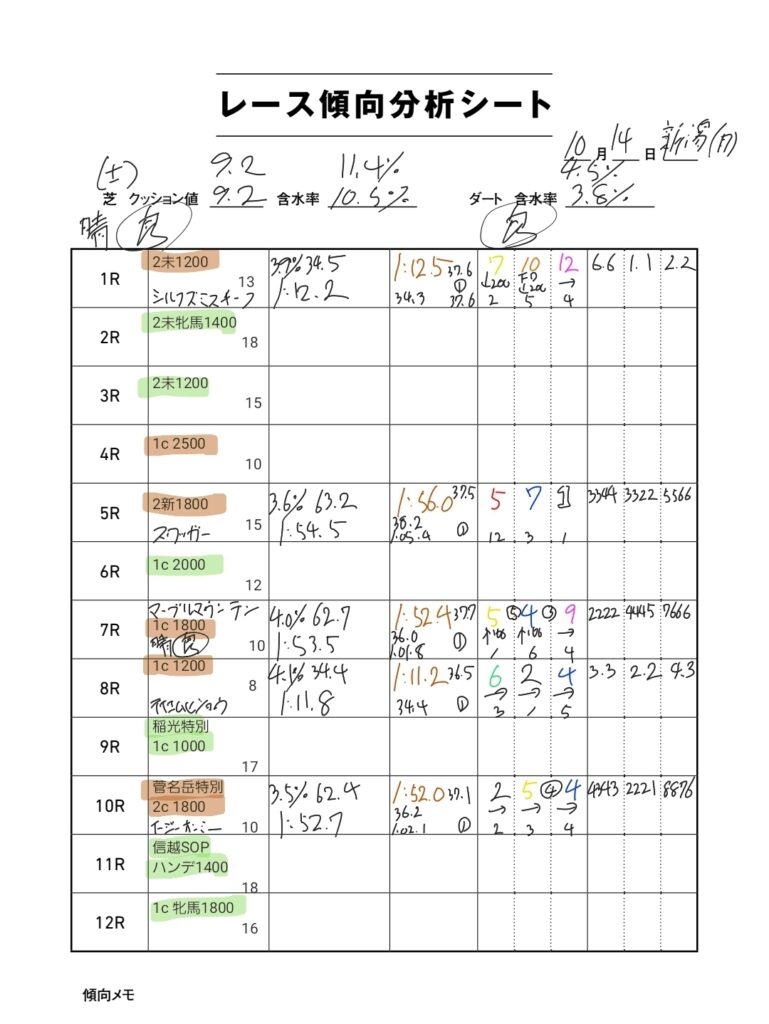 レース傾向分析シート
10月14日 新潟(月)
(土) 9.2 11.4% 4.5%
芝 クッション値 9.2 含水率 10.5% ダート 含水率 3.8%
晴 良 良
1R 2未1200 13 3.7% 34.5 1:12.5 37.6 7 10 12 6.6 1.1 2.2
シルクズミスキーフ 1:12.2 34.3 ① 37.6 ↓200 ↓200 → 2 5 4
2R 2未牝馬1400 18
3R 2未1200 15
4R 1c 2500 10
5R 2新1800 15 3.6% 63.2 1:56.0 37.5 5 7 1 3344 3322 5566
スワッガー 1:54.5 38.2 1.05.4 ① 12 3 1
6R 1c 2000 12
7R マーブルマウンテン
1c 1800 10 4.0% 62.7 1:52.4 37.7 5 ⑤ 4 ③ 9 2222 4445 7666
晴 良 1:53.5 36.0 1.01.8 ① → 1 6 4
8R 1c 1200 8 4.1% 34.4 1:11.2 36.5 6 2 4 3.3 2.2 4.3
1:11.8 34.4 ① → → → 3 1 5
9R 稲光特別
1c 1000 17
10R 菅名岳特別
2c 1800 10 3.5% 62.4 1:52.0 37.1 2 5 ④ 4 4343 2221 8876
1:52.7 36.2 1.02.1 ① → → → 2 3 4
11R 信越SOP
ハンデ1400 18
12R 1c 牝馬1800 16
傾向メモ